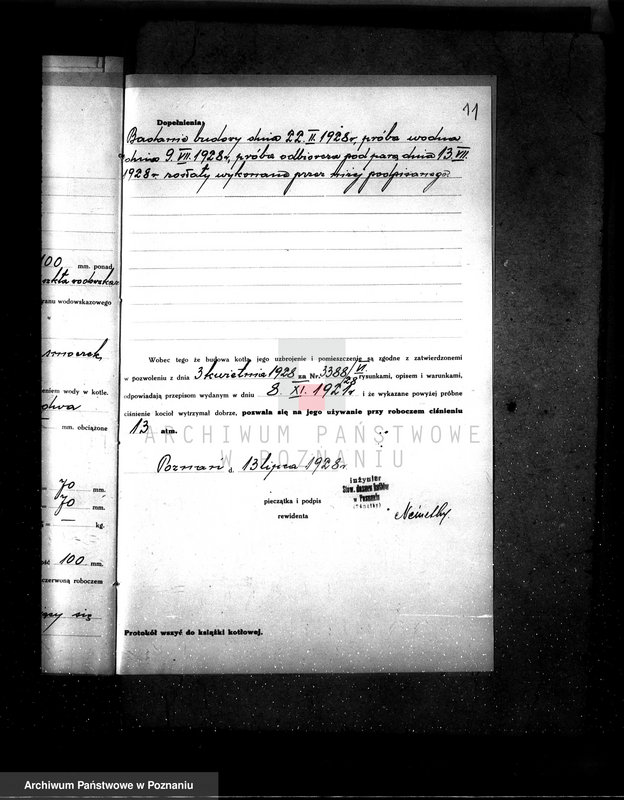 11
Dopełnienia
Badanie budowy dnia 22.II.1928r, próba wodna
dnia 9.VII.1928r, próba odbiorcza pod parą dnia 13.VII.
1928r. zostały wykonane przez niżej podpisanego.
100 mm. ponad
szkła wodowskaz
ranu wodowskazowego
w
smoczek
eniem wody w kotle.
dwa
mm. obciążone
= 70 mm.
= 70 mm.
= — kg.
ość 100 mm.
czerwoną roboczem
się
Wobec tego że budowa kotła, jego uzbrojenie i pomieszczenie są zgodne z zatwierdzonemi
w pozwoleniu z dnia 3 kwietnia 1928 za Nr. 3388/VI 28 rysunkami, opisem i warunkami,
odpowiadają przepisom wydanym w dniu 8. XI. 1921r i że wykazane powyżej próbne
ciśnienie kocioł wytrzymał dobrze, pozwala się na jego używanie przy roboczem ciśnieniu
13 atm.
ARCHIWUM PAŃSTWOWE
W POZNANIU
Poznań d. 13 lipca 1928r.
pieczątka i podpis
rewidenta
inżynier
Stow. dozoru kotłów
w Poznaniu
Némethy.
Protokół wszyć do książki kotłowej.
Archiwum Państwowe w Poznaniu